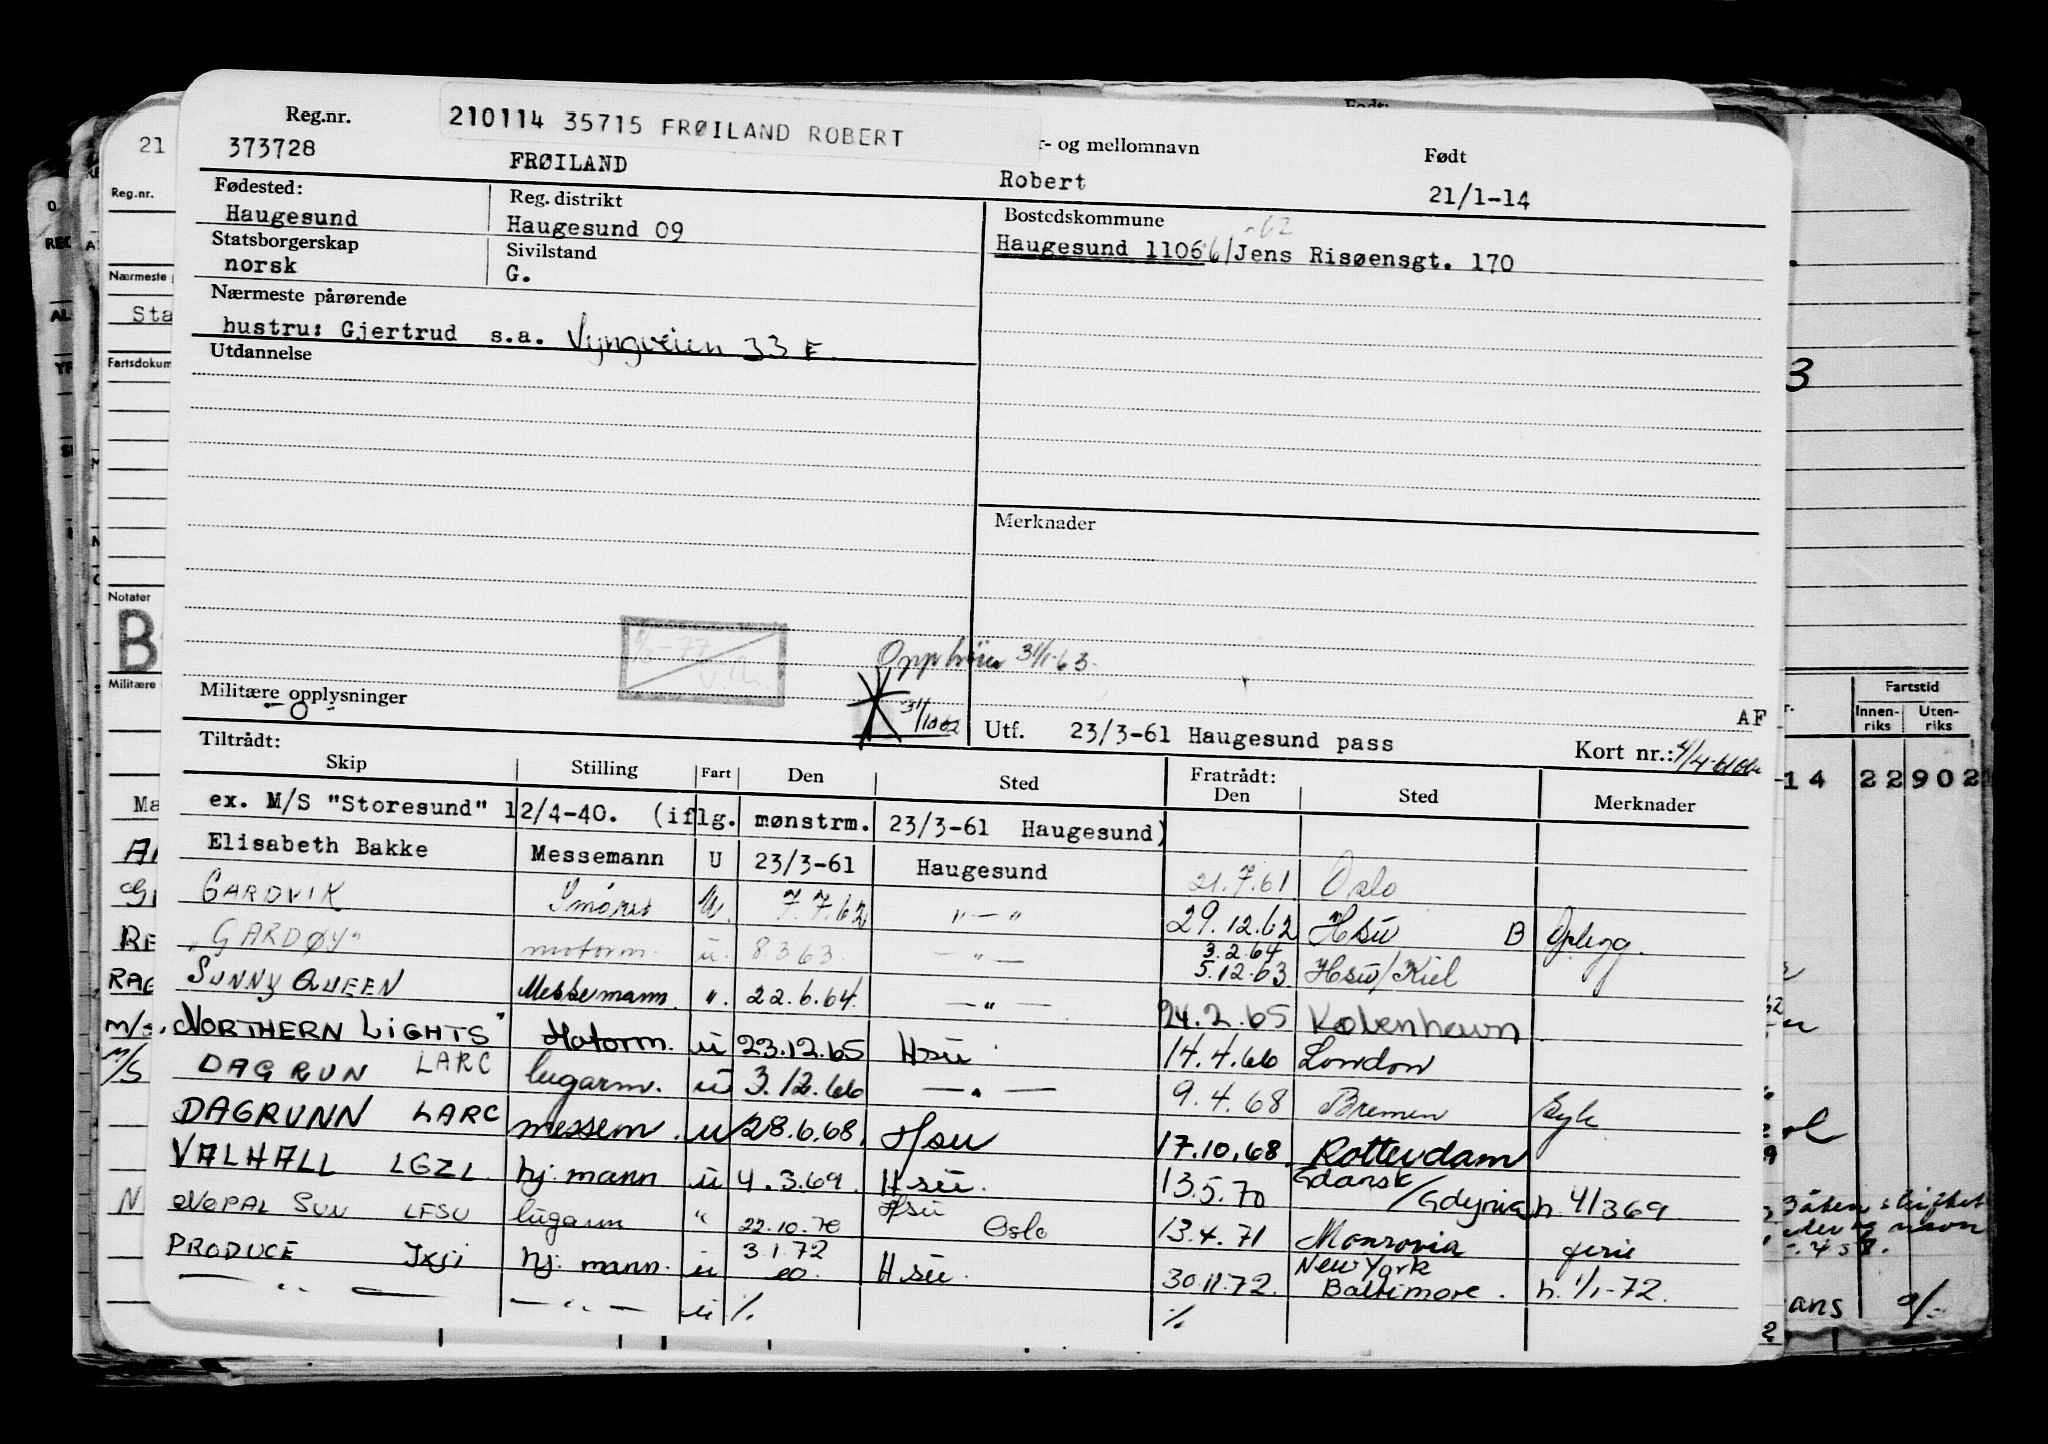 Reg.nr.
210114 35715 FRØILAND ROBERT
r- og mellomnavn
Født
373728
FRØILAND
Robert
21/1-14
Fødested:
Reg. distrikt
Bostedskommune
Haugesund
Haugesund 09
-62
Haugesund 1106 6/ Jens Risøensgt. 170
Statsborgerskap
Sivilstand
norsk
G.
Nærmeste pårørende
hustru: Gjertrud s.a. Vyngveien 33 F
Utdannelse
Merknader
Opphører 31/1-63.
31/10 62
Militære opplysninger
- 0 -
AF
Utf. 23/3-61 Haugesund pass
Kort nr.:
Tiltrådt:
Skip Stilling Fart Den Sted Fratrådt: Den Sted Merknader
ex. M/S "Storesund" 12/4-40. (iflg. mønstrm. 23/3-61 Haugesund)
Elisabeth Bakke Messemann U 23/3-61 Haugesund 21.7.61 Oslo
GARDVIK Smører U. 7.7.62 " — " 29.12.62 Hsu B Oplegg.
"GARDØY" motorm. u. 8.3.63. — " — 3.2.64 5.12.63 Hsu/Kiel
SUNNY QUEEN Messemann. ". 22.6.64. — " — 24.2.65 København
"NORTHERN LIGHTS" Motorm. u 23.12.65 Hsu 14.4.66 London
DAGRUN LARC lugarm. u 3.12.66 — " — 9.4.68 Bremen Syk
DAGRUNN LARC messem. u 28.6.68. Hsu 17.10.68. Rotterdam
VALHALL LGZL. hj. mann u 4.3.69. Hsu. 13.5.70 Gdansk/Gdynia h. 4/3 69
NEPAL SUN LFSU lugarm " 22.10.70 Hsu Oslo 13.4.71 Monrovia ferie
PRODUCE JXJI hj. mann. u 3.1.72 Hsu. 30.11.72. New York Baltimore. h. 1/1-72.
— " — — " — u %. %.
21
Reg.nr.
Nærmeste
Sta
Notater
B
Militære
Fartstid
Innen-riks Uten-riks
14 22 902